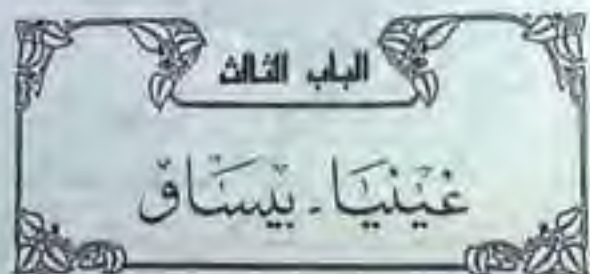 الباب الثالث
غينيا - بيساو